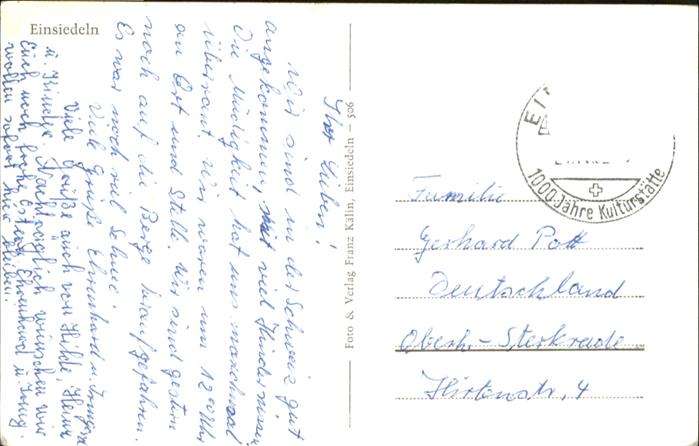 Einsiedeln
Ihr Lieben!
Wir sind in der Schweiz gut
angekommen, viel Hindernissen,
Die Müdigkeit hat uns manchmal
übermannt. Wir waren um 12⁰⁰ Uhr
an Ort und Stelle. Wir sind gestern
noch auf die Berge heraufgefahren.
Es war noch viel Schnee.
Viele Grüße Ehrenhard u. Irmgard
Viele Grüße auch von Hilde, Heinz
u. Kinder. Nachträglich wünschen wir
Euch noch frohe Ostern Ehrenhard u. Irmg.
wollen sofort hier
Foto & Verlag Franz Kälin, Einsiedeln — 506
EIN
1000 Jahre Kulturstätte
Familie
Gerhard Pott
Deutschland
Oberh.-Sterkrade
Hirtenstr. 4